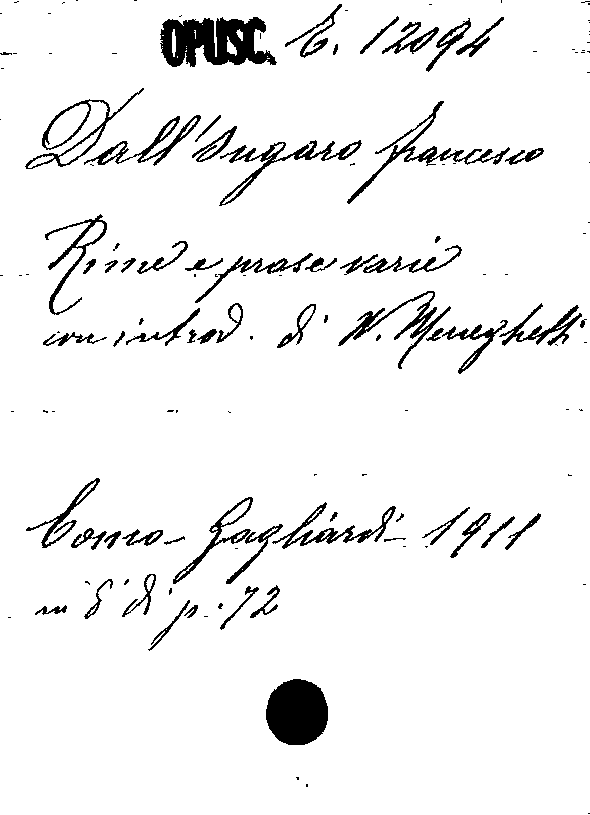 OPUSC. E. 12094
Dall'Ongaro Francesco
Rime e prose varie
con introd. di N. Meneghetti
Como - Gagliardi - 1911
in 8° di p. 72